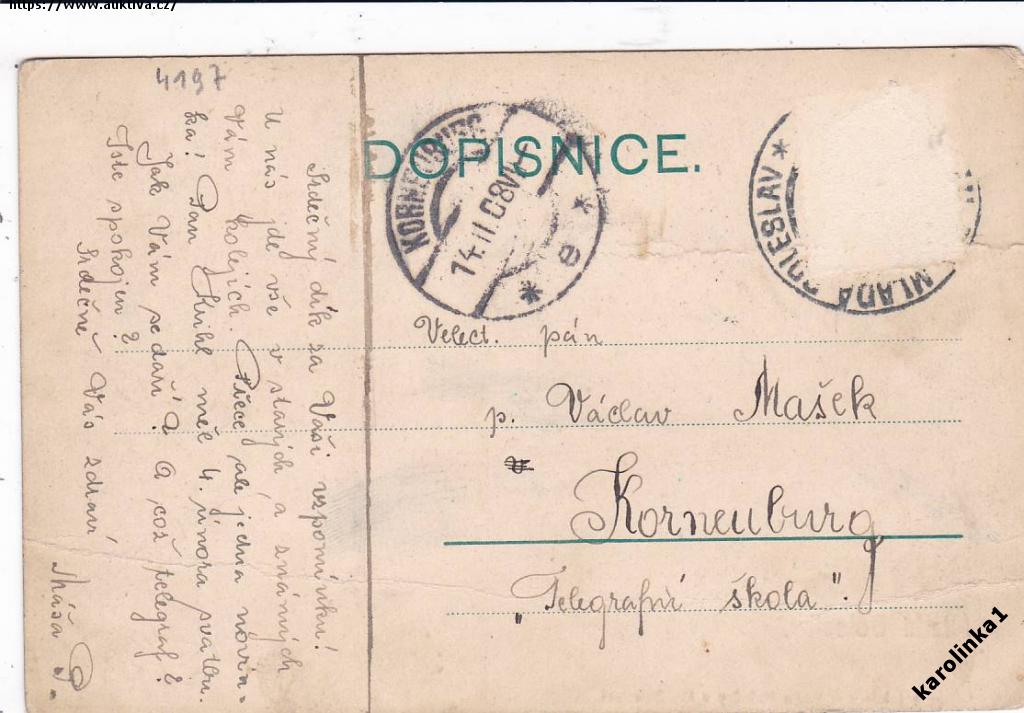 https://www.auktiva.cz/
4197
DOPISNICE.
KORNEUBURG
14.II.08
e
MLADÁ BOLESLAV
Srdečný dík za Vaši vzpomínku!
U nás jde vše v starých a známých
kolejích. Přece ale jedna novin-
Vám
ka! Pan Kuihl měl 4. února svatbu.
Jak Vám se daří? A což telegraf?
Jste spokojen?
Srdečně Vás zdraví
Máša P.
Velect. pán
p. Václav Mašek
Korneuburg
"Telegrafní škola".
karolinka1